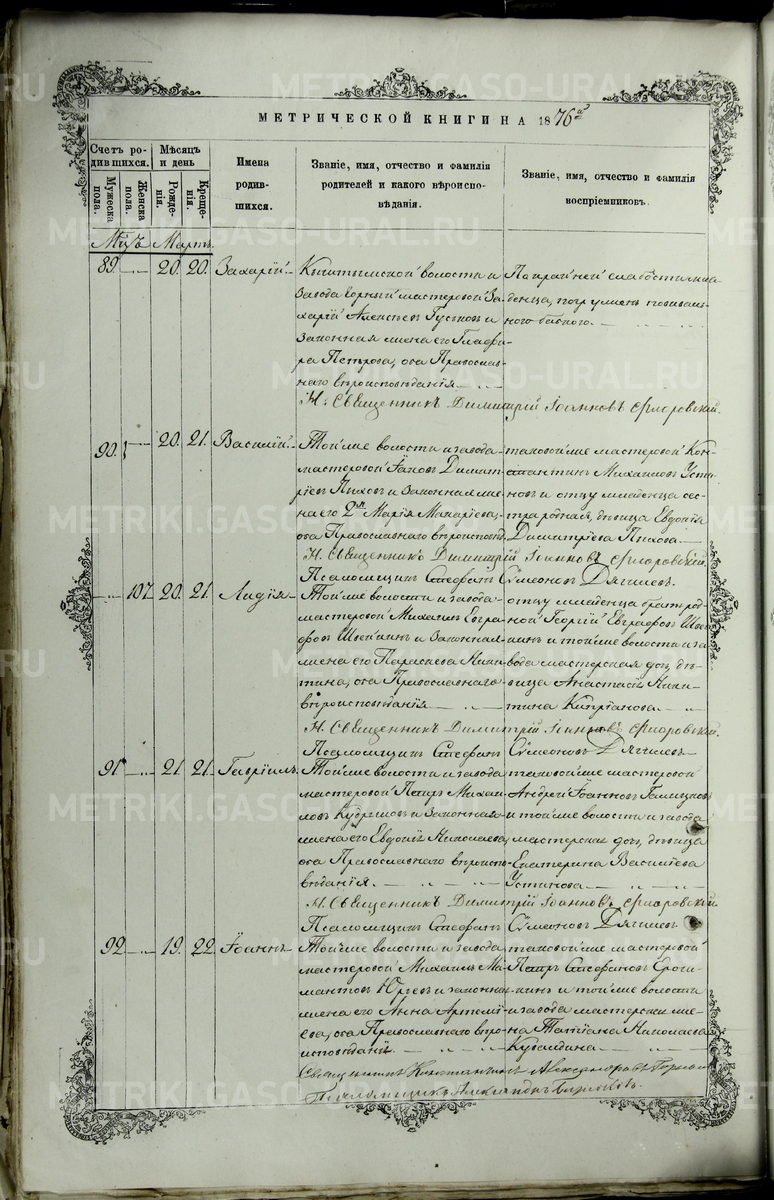 МЕТРИЧЕСКОЙ КНИГИ НА 1876й
Счетъ ро-
дившихся.
Мѣсяцъ
и день
Мужеска
пола.
Женска
пола.
Рожде-
нія.
Креще-
нія.
Имена
родив-
шихся.
Званіе, имя, отчество и фамилія
родителей и какого вѣроиспо-
вѣданія.
Званіе, имя, отчество и фамилія
воспріемниковъ.
Мцъ Мартъ.
89. 20. 20. Захарій
Кыштымской волости и
завода горный мастеровой За-
харій Алексѣевъ Гуськовъ и
законная жена его Глафи-
ра Петрова, оба Православ-
наго вѣроисповѣданія.
По крайней слабости мла-
денца, погружен повиваль-
ною бабкою.
Н. Священникъ Димитрій Іоанновъ
90. 20. 21. Василій
Той же волости и завода
мастеровой Іаковъ Димит-
ріевъ Пыховъ и законная же-
на его 2 Марія Макаріева,
оба Православнаго вѣроисповѣд.
таковой же мастеровой Кон-
стантинъ Михаиловъ Усти-
новъ и отцу младенца сес-
тра родная, дѣвица Евдокія
Димитріева Пыхова.
Н. Священникъ Димитрій Іоанновъ
Псаломщикъ Стефанъ Сумеоновъ Дягилевъ.
107. 20. 21. Лидія
Той же волости и завода
мастеровой Михаилъ Евгра-
фовъ и законная
жена его Параскева Ники-
тина, оба Православнаго
вѣроисповѣданія
отцу младенца братъ род-
ной Георгій Евграфовъ
и той же волости и за-
вода мастерская дочь, дѣ-
вица Анастасія Ники-
тина Кипріанова.
Н. Священникъ Димитрій Іоанновъ
Псаломщикъ Стефанъ Сумеоновъ Дягилевъ
91. 21. 21. Гавріилъ
Той же волости и завода
мастеровой Петръ Михаи-
ловъ и законная
жена его Евдокія Николаева,
оба Православнаго вѣроиспо-
вѣданія.
таковой же мастеровой
Андрей Іоанновъ
и той же волости и завода
мастерская дочь, дѣвица
Екатерина Василіева
Устинова
Н. Священникъ Димитрій Іоанновъ
Псаломщикъ Стефанъ Сумеоновъ Дягилевъ
92. 19. 22. Іоаннъ
Той же волости и завода
мастеровой Михаилъ Ма-
мантовъ Юрьевъ и законная
жена его Анна Артеміе-
ва, оба Православнаго вѣро-
исповѣданія.
таковой же мастеровой
Петръ Стефановъ
и той же волости
и завода мастерская же-
на Татіана Николаева
Священникъ Константинъ Александровъ
Псаломщикъ Александръ
METRIKI.GASO-URAL.RU